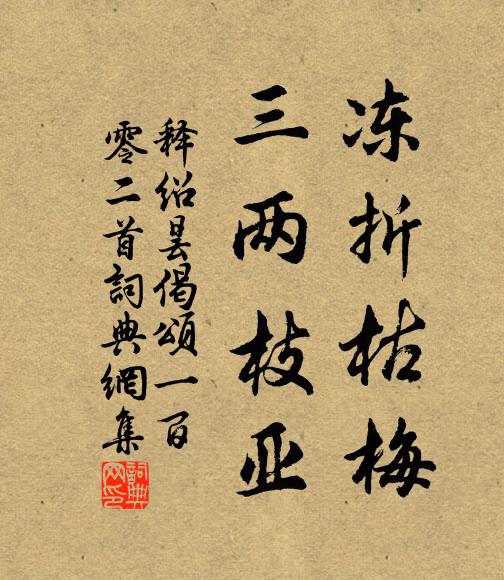 冻折枯梅
三两枝亚
释绍昙偈颂一百
零二首詞典網集
詞典
网印